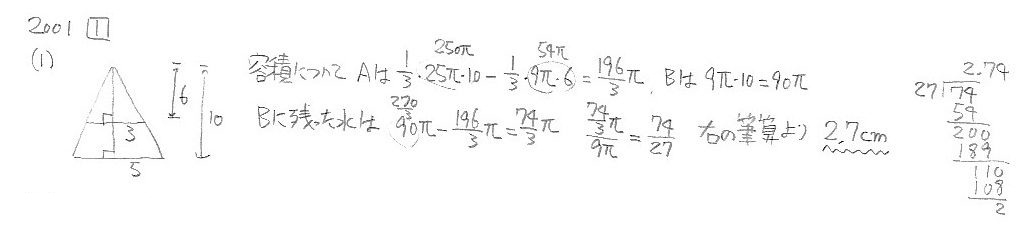 2001 1
(1)
6
10
3
5
容積について Aは 1/3・25π・10 − 1/3・9π・6 = 196/3 π, Bは 9π・10 = 90π
250π 54π
Bに残った水は 90π − 196/3 π = 74/3 π (74/3 π)/(9π) = 74/27 右の筆算より 2.7cm
270/3
2.74
27)74
54
200
189
110
108
2